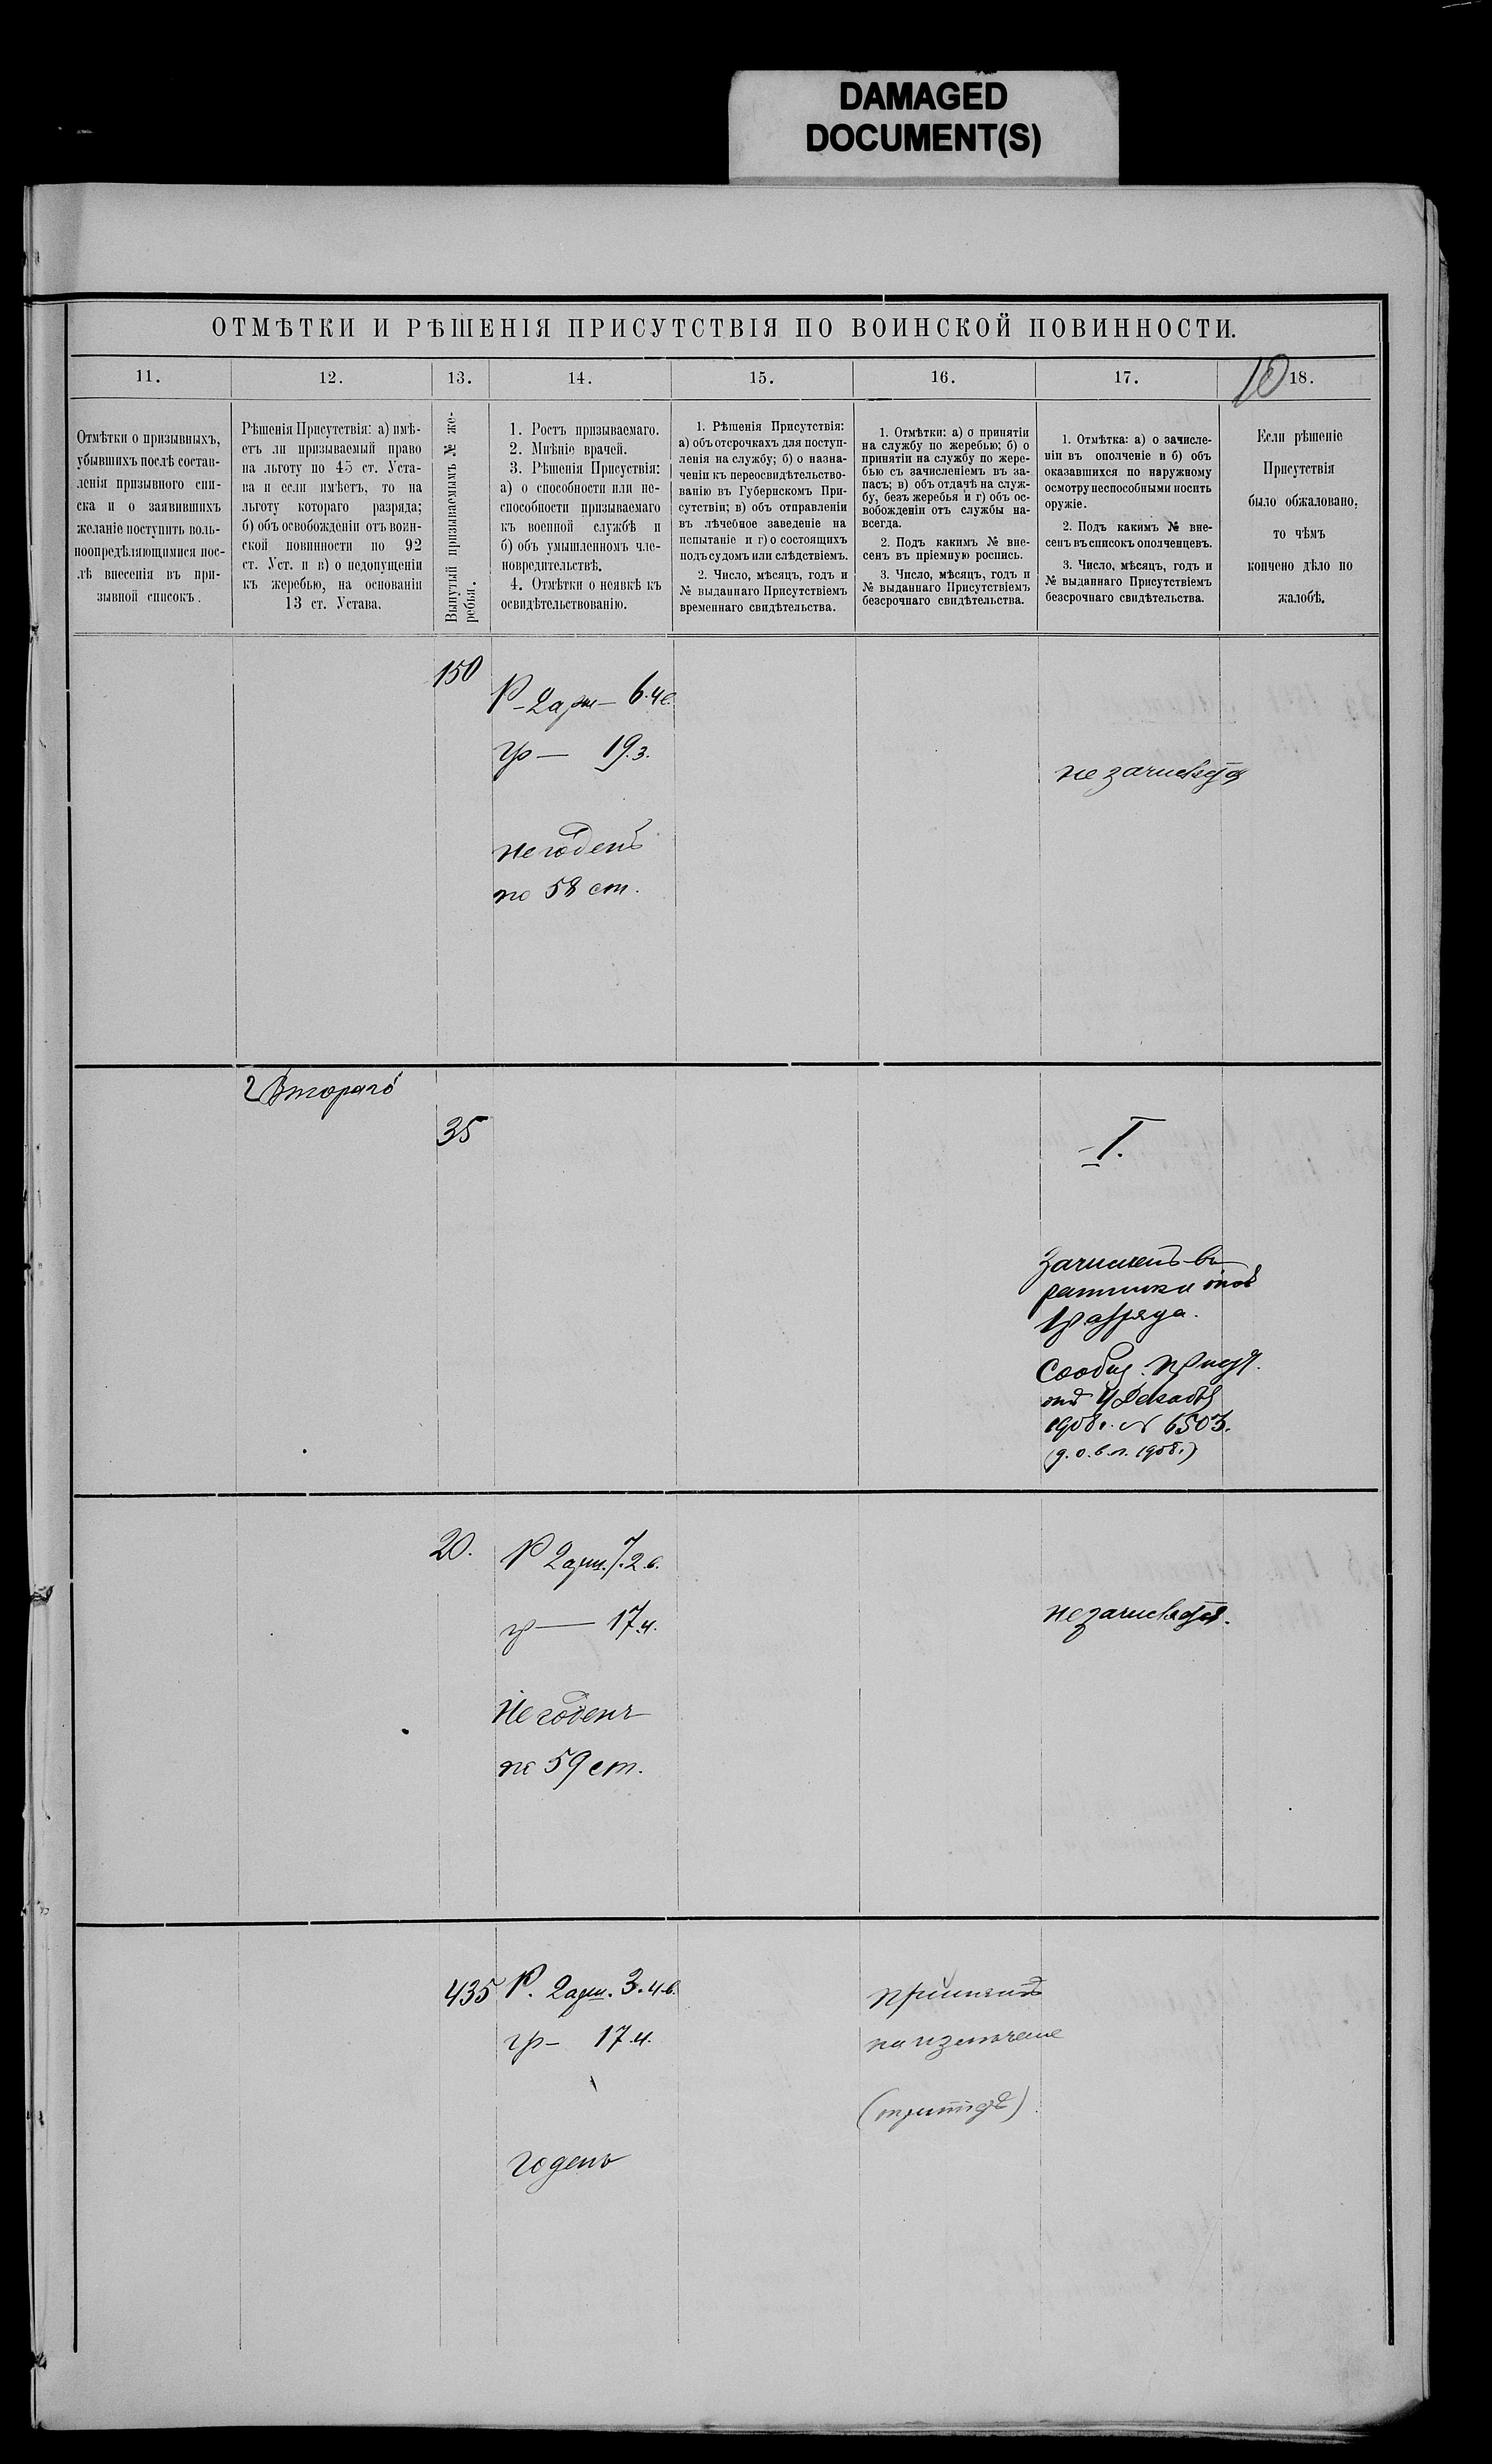 DAMAGED
DOCUMENT(S)
ОТМѢТКИ И РѢШЕНІЯ ПРИСУТСТВІЯ ПО ВОИНСКОЙ ПОВИННОСТИ.
10
11.
12.
13.
14.
15.
16.
17.
18.
Отмѣтки о призывныхъ,
убывшихъ послѣ состав-
ленія призывного спи-
ска и о заявившихъ
желаніе поступить воль-
ноопредѣляющимися пос-
лѣ внесенія въ при-
зывной списокъ.
Рѣшенія Присутствія: а) имѣ-
етъ ли призываемый право
на льготу по 45 ст. Уста-
ва и если имѣетъ, то на
льготу котораго разряда;
б) объ освобожденіи отъ воин-
ской повинности по 92
ст. Уст. и в) о недопущеніи
къ жеребью, на основаніи
13 ст. Устава.
Вынутый призываемымъ № же-
ребья.
1. Ростъ призываемаго.
2. Мнѣніе врачей.
3. Рѣшенія Присуствія:
а) о способности или не-
способности призываемаго
къ военной службѣ и
б) объ умышленномъ чле-
новредительствѣ.
4. Отмѣтки о неявкѣ къ
освидѣтельствованію.
1. Рѣшенія Присутствія:
а) объ отсрочкахъ для поступ-
ленія на службу; б) о назна-
ченіи къ переосвидѣтельство-
ванію въ Губернскомъ При-
сутствіи; в) объ отправленіи
въ лѣчебное заведеніе на
испытаніе и г) о состоящихъ
подъ судомъ или слѣдствіемъ.
2. Число, мѣсяцъ, годъ и
№ выданнаго Присутствіемъ
временнаго свидѣтельства.
1. Отмѣтки: а) о принятіи
на службу по жеребью; б) о
принятіи на службу по жере-
бью съ зачисленіемъ въ за-
пасъ; в) объ отдачѣ на служ-
бу, безъ жеребья и г) объ ос-
вобожденіи отъ службы на-
всегда.
2. Подъ какимъ № вне-
сенъ въ пріемную роспись.
3. Число, мѣсяцъ, годъ и
№ выданнаго Присутствіемъ
безсрочнаго свидѣтельства.
1. Отмѣтка: а) о зачисле-
ніи въ ополченіе и б) объ
оказавшихся по наружному
осмотру неспособными носить
оружіе.
2. Подъ какимъ № вне-
сенъ въ списокъ ополченцевъ.
3. Число, мѣсяцъ, годъ и
№ выданнаго Присутствіемъ
безсрочнаго свидѣтельства.
Если рѣшеніе
Присутствія
было обжаловано,
то чѣмъ
кончено дѣло по
жалобѣ.
150
Р – 2 арш – 6.4 в.
гр – 19.3.
не годенъ
по 58 ст.
не
Втораго
35
I.
Зачисленъ въ
ратники
1 разряда.
Сообщ.
отъ
1908 г. № 6503.
20.
Р 2 арш. 7.2 в.
гр – 17.4.
Не годенъ
по 59 ст.
не
435
Р. 2 арш. 3.4 в.
гр – 17.4.
годенъ
принятъ